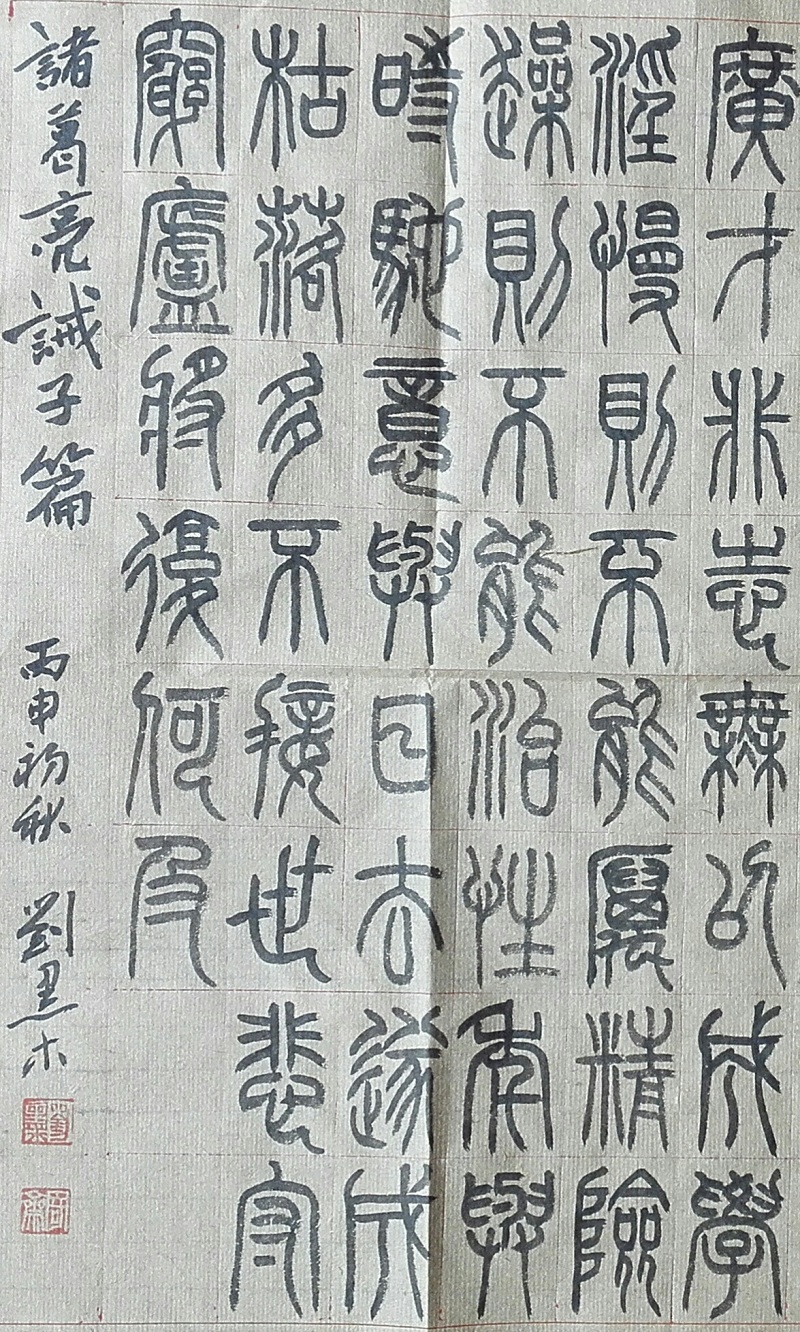 廣才非志無以成學
淫慢則不能厲精險
躁則不能治性年與
時馳意與日去遂成
枯落多不接世悲守
窮廬將復何及
諸葛亮誡子篇 丙申初秋 劉